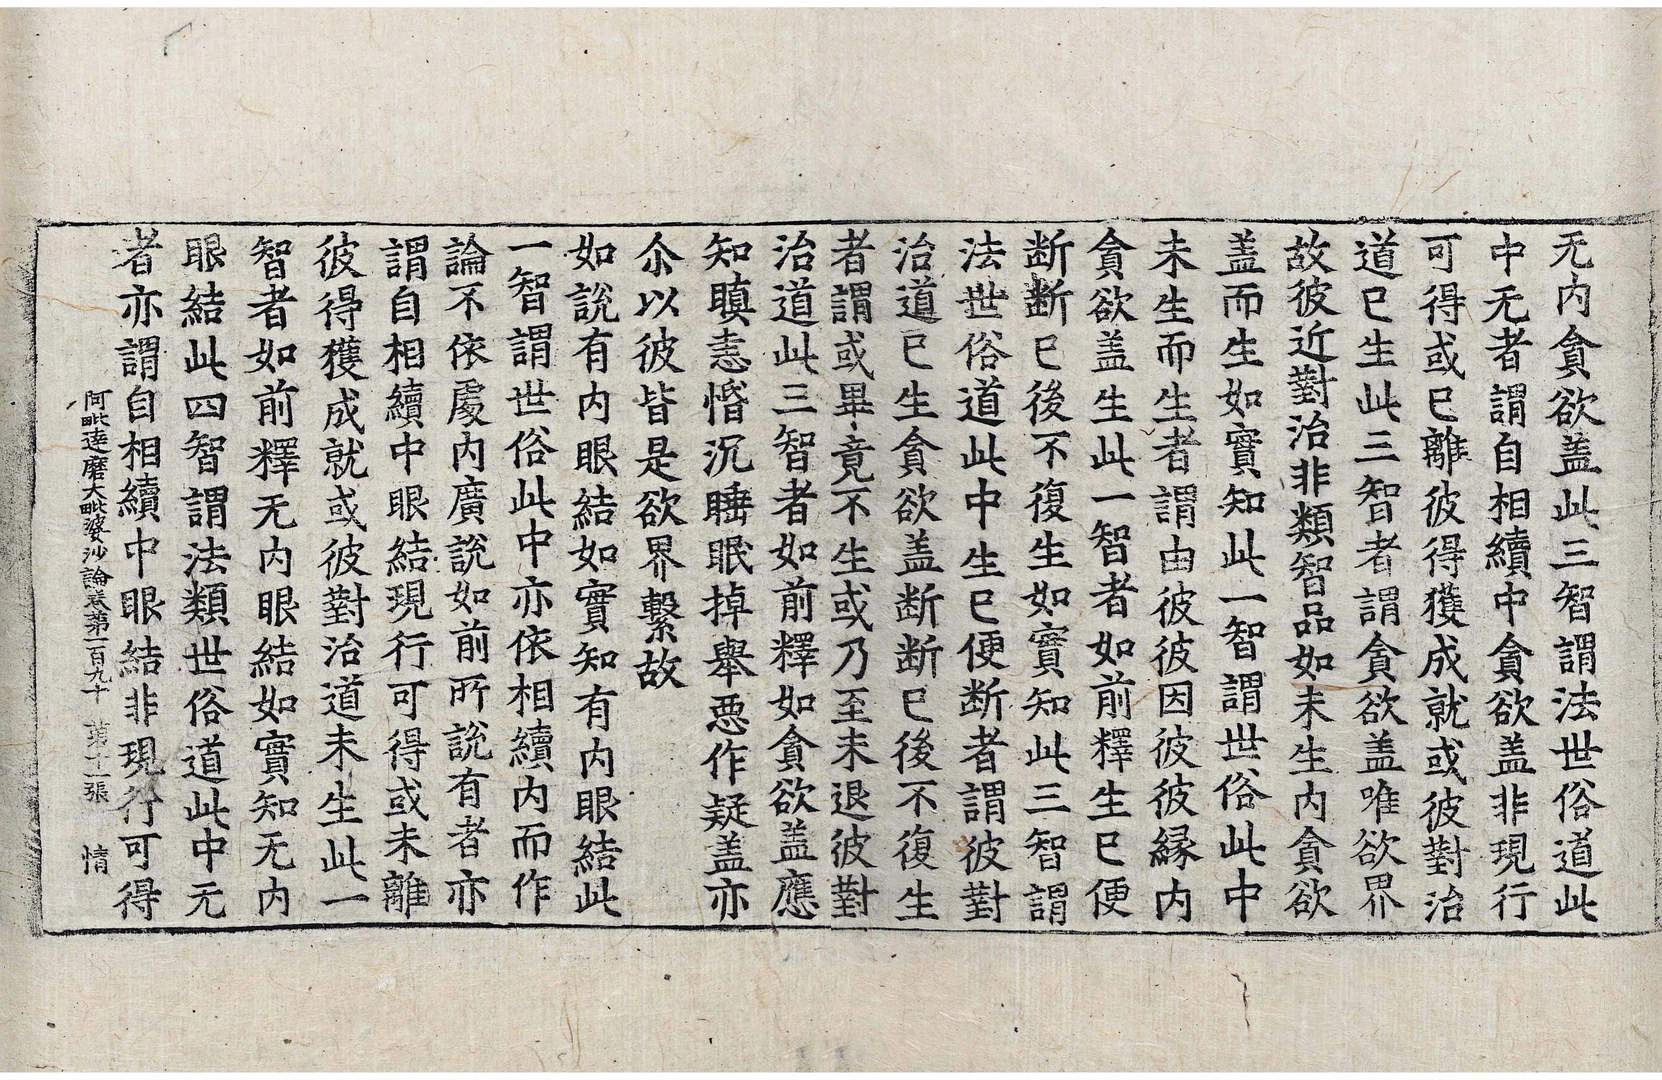 无内貪欲盖此三智謂法世俗道此
中无者謂自相續中貪欲盖非現行
可得或已離彼得獲成就或彼對治
道已生此三智者謂貪欲盖唯欲界
故彼近對治非類智品如未生内貪欲
盖而生如實知此一智謂世俗此中
未生而生者謂由彼彼因彼彼縁内
貪欲盖生此一智者如前釋生已便
断断已後不復生如實知此三智謂
法世俗道此中生已便断者謂彼對
治道已生貪欲盖断断已後不復生
者謂或畢竟不生或乃至未退彼對
治道此三智者如前釋如貪欲盖應
知瞋恚惛沉睡眠掉舉惡作疑盖亦
尒以彼皆是欲界繫故
如說有内眼結如實知有内眼結此
一智謂世俗此中亦依相續内而作
論不依處内廣說如前所說有者亦
謂自相續中眼結現行可得或未離
彼得獲成就或彼對治道未生此一
智者如前釋无内眼結如實知无内
眼結此四智謂法類世俗道此中无
者亦謂自相續中眼結非現行可得
阿毗達磨大毗婆沙論卷第一百九十 第十一張 情